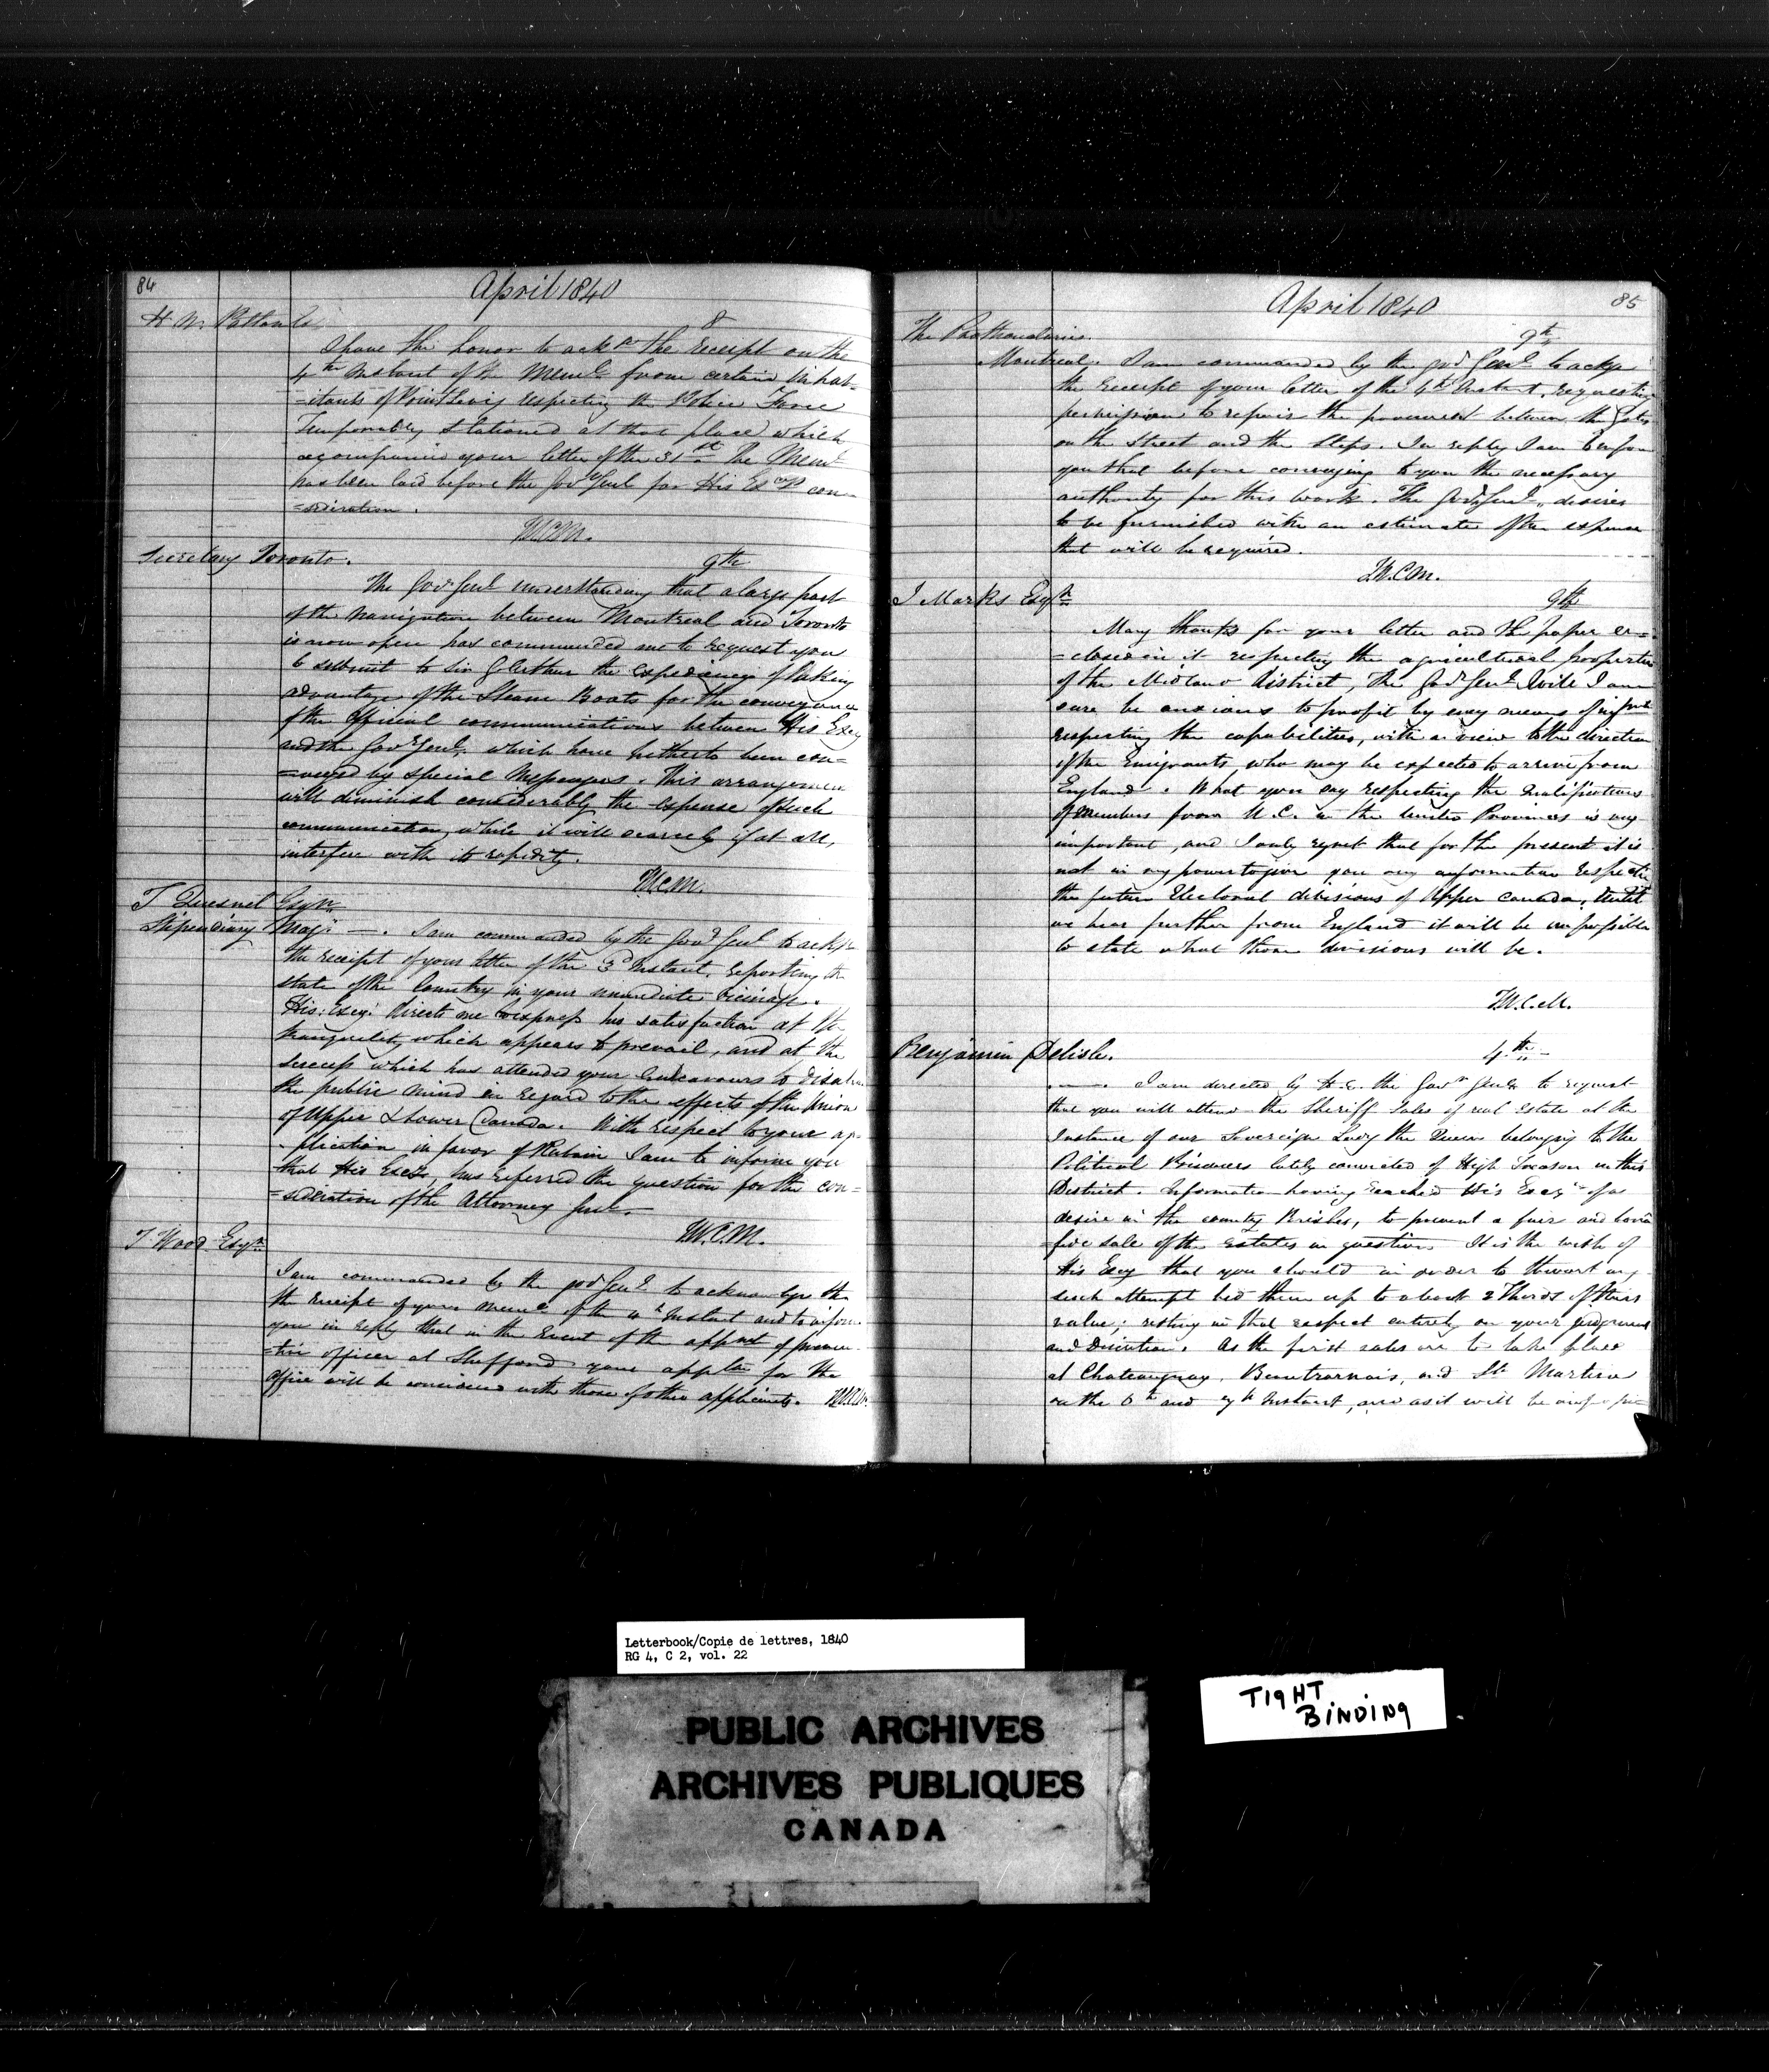 84
April 1840
H W.
8
I have the honor to ack^e the receipt on the
4th Instant of the Mem^l from certain inhab=
=itants of Point Levis respecting the Police Force
Temporarily stationed at that place which
accompanied your letter of the 31st. The Mem^l
has been laid before the Gov^r Genl for His Excy's con=
=sideration.
T.W.C.M.
Secretary Toronto.
9th
The Gov^r Genl understanding that a large part
of the navigation between Montreal and Toronto
is now open has commanded me to request you
to submit to Sir G Arthur the expediency of taking
advantage of the Steam Boats for the conveyance
of the Official communications between His Excy
and the Gov^r Genl, which have hitherto been con=
=veyed by special Messengers. This arrangement
will diminish considerably the expense of such
communication, while it will scarcely if at all,
interfere with its rapidity.
T.W.C.M.
T Quesnel Esqre
Stipendiary Mag: —. I am commanded by the Gov^r Genl to ackge
the receipt of your letter of the 3^d Instant, reporting the
state of the Country in your immediate vicinage.
His: Excy: directs me to express his satisfaction at the
tranquility which appears to prevail, and at the
success which has attended your endeavours to disabuse
the public mind in regard to the effects of the Union
of Upper & Lower Canada. With respect to your ap=
=plication in favor of I am to inform you
that His Excy, has referred the question for the con=
=sideration of the Attorney Genl.—
T.W.C.M.
T Wood Esqre
I am commanded by the Gov^r Gen^l to acknowlge the
the receipt of your Mem^l of the 4^h Instant and to inform
you in reply that in the Event of the appmt of preven
=tive officer at Shefford your appl^n for the
Office will be considered with those of other applicants. T.W.C.M.
85
April 1840
The Prothonotaries
9th
Montreal. I am commanded by the Gov^r Genl to ackge
the receipt of your letter of the 4th Instant, requesting
permission to repair the pavement between the Gates
on the Street and the Steps. In reply I am to inform
you that before conveying to you the necessary
authority for this work. The Gov^r Genl, desires
to be furnished with an estimate of the expense
that will be required.
T.W.C.M.
J Marks Esqr
9th
Many thanks for your letter and the paper en=
=closed in it respecting the agricultural properties
of the Midland District, The Gov^r Gen^l will I am
sure be anxious to profit by every means of inform
respecting the capabilities, with a view to the direction
of the Emigrants, who may be expected to arrive from
England. What you say respecting the Qualifications
of Members from U.C. in the United Provinces is very
important, and I only regret that for the present it is
not in my power to give you any information respecting
the future Electoral divisions of Upper Canada, Until
we hear further from England it will be impossible
to state what those divisions will be.
T.W.C.M.
Benjamin Delisle.
4th —
—. I am directed by H.E. the Gov^r Genl to request
that you will attend the Sheriff Sales of real Estate at the
Instance of our Sovereign Lady the Queen belonging to the
Political Prisoners lately convicted of High Treason in this
District. Information having reached His Excy of a
desire in the country Parishes, to prevent a fair and bonâ
=fide sale of the Estates in question It is the wish of
His Excy that you should in order to thwart any
such attempt bid them up to about 2 Thirds of their
value; resting in that respect entirely on your judgment
and discretion. As the first sales are to take place
at Chateauguay, Beauharnois, and St Martine
on the 6th and 7h Instant, and as it will be
Letterbook/Copie de lettres, 1840
RG 4, C 2, vol. 22
PUBLIC ARCHIVES
ARCHIVES PUBLIQUES
CANADA
TIGHT
BINDING